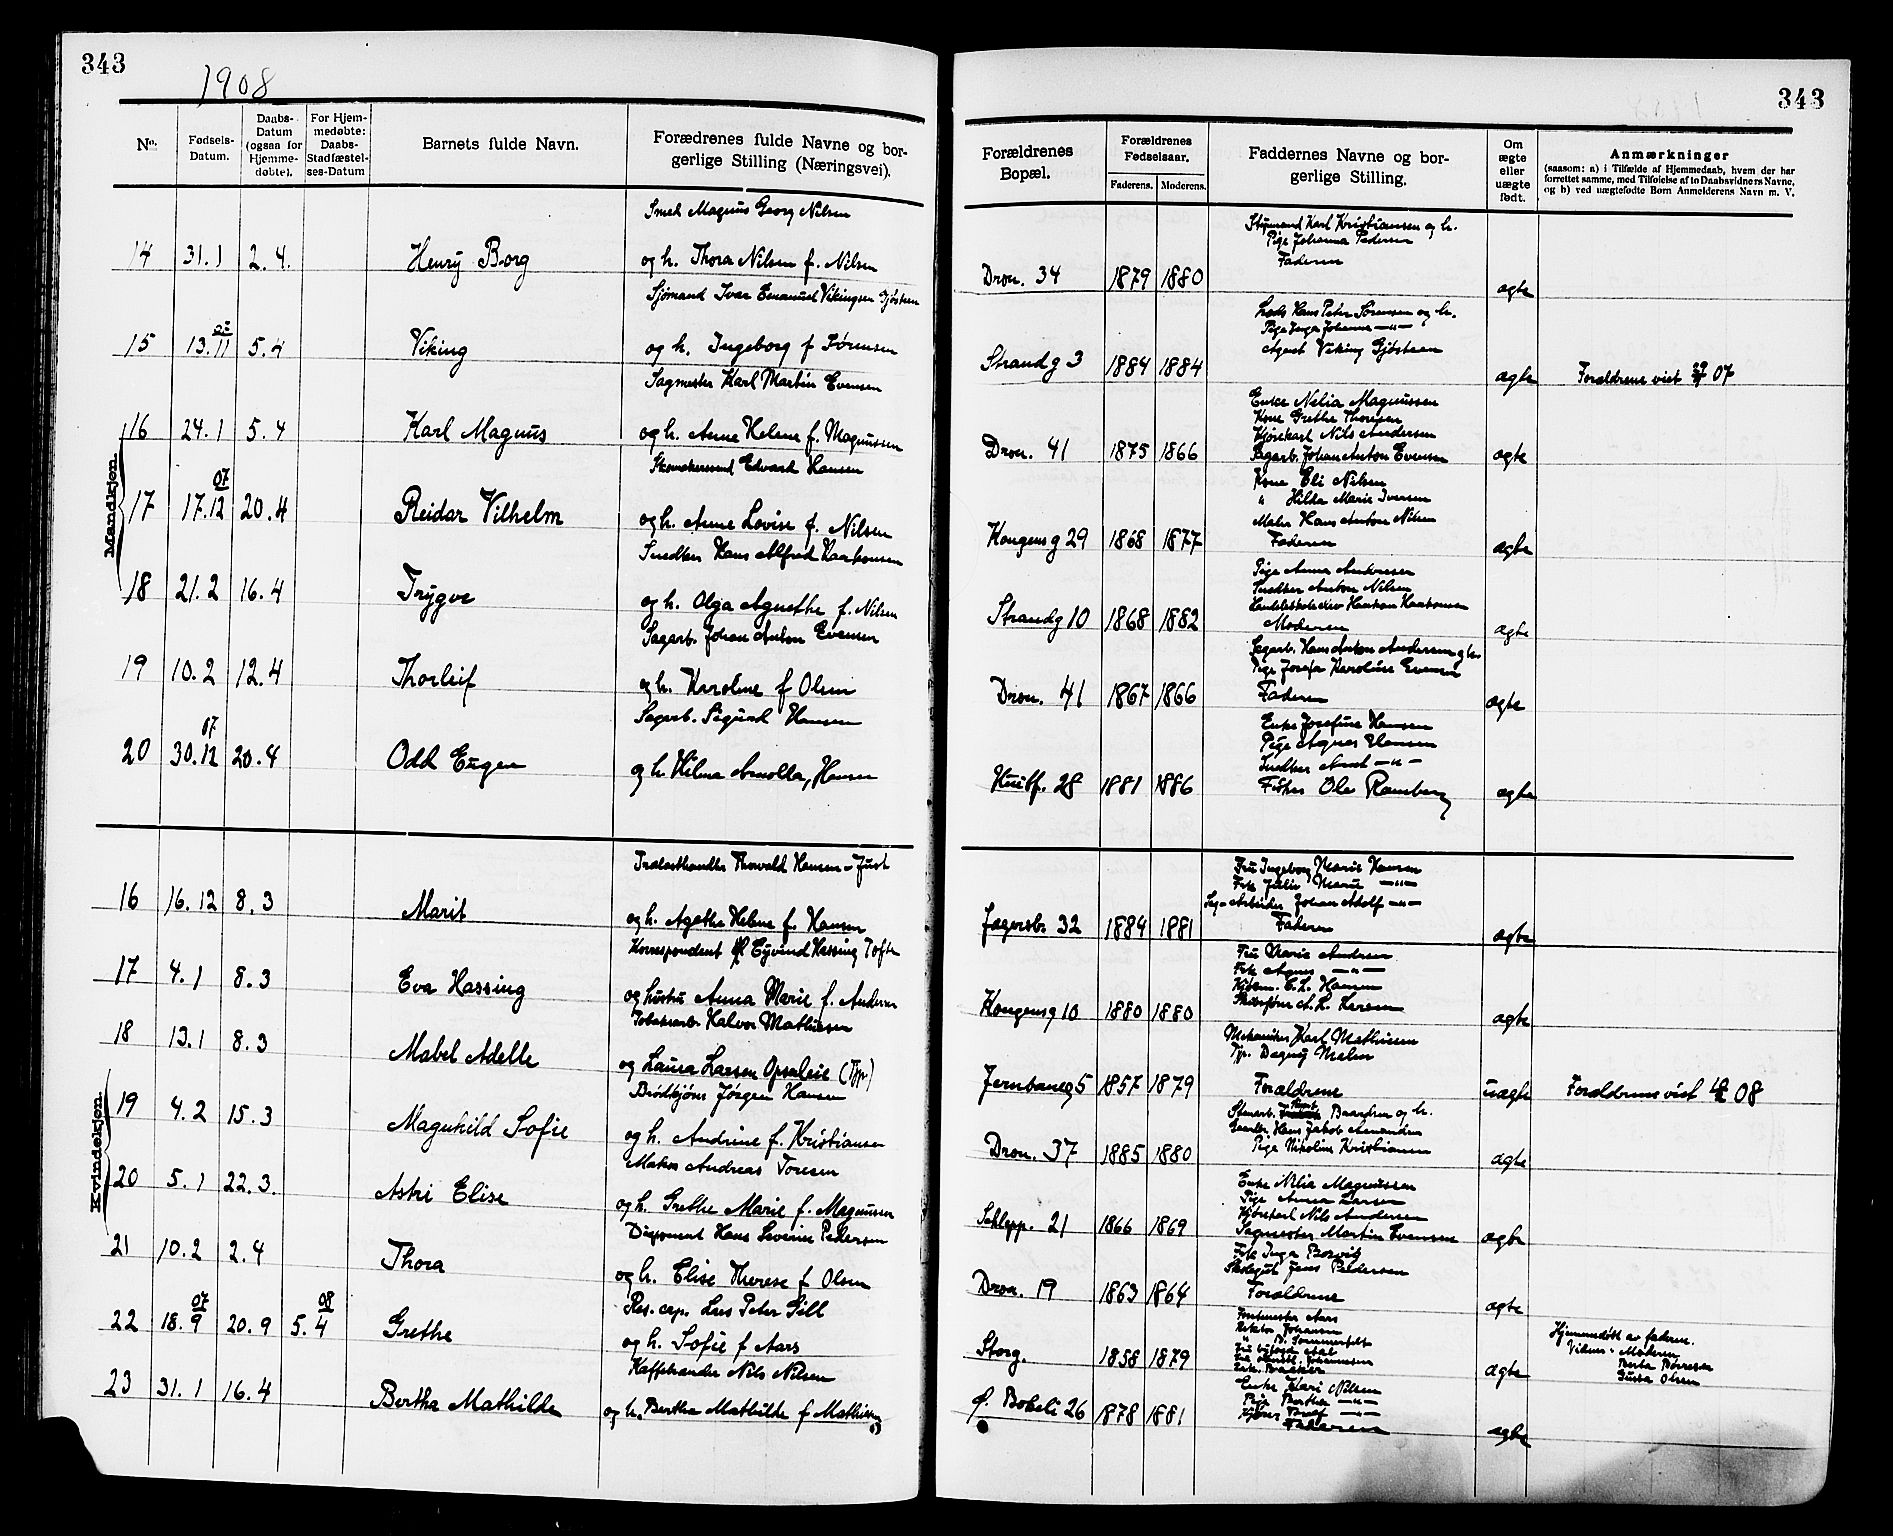 343
1908
343
No.
Fødsels-Datum.
Daabs-Datum (ogsaa for Hjemme-døbte).
For Hjem-medøbte: Daabs-Stadfæstel-ses-Datum
Barnets fulde Navn.
Forældrenes fulde Navne og bor-gerlige Stilling (Næringsvei).
Forældrenes Bopæl.
Forældrenes Fødselsaar.
Faderens. Moderens.
Faddernes Navne og bor-gerlige Stilling.
Om ægte eller uægte født.
Anmærkninger
(saasom: a) i Tilfælde af Hjemmedaab, hvem der har
forrettet samme, med Tilføielse af to Daabsvidners Navne,
og b) ved uægtefødte Børn Anmelderens Navn m. V.
Mandkjøn.
Smed Magnus Georg Nilsen
14 31.1 2.4. Henry Borg og h. Thora Nilsen f. Nilsen
Dron. 34 1879 1880
Styrmand Karl Kristiansen og h.
Pige Johanna Pedersen
Faderen
ægte
Sjømand Ivar Emanuel Vikingsen Gjøsteen
15 13.11 5.4 Viking og h. Ingeborg f Sørensen
Strandg 3 1884 1884
Lods Hans Peter Sørensen og h.
Pige Inga Johanne —"—
Agent Viking Gjøsteen
ægte Forældrene viet 07
Sagmester Karl Martin Evensen
16 24.1 5.4 Karl Magnus og h. Anne Helene f. Magnussen
Dron. 41 1875 1866
Enke Nelia Magnussen
Kone Grethe Thoresen
Kjørekarl Nils Andersen
Sagarb. Johan Anton Evensen
ægte
Skomakersvend Edvard Hansen
17 17.12 07 20.4 Reidar Vilhelm og h. Anne Lovise f. Nilsen
Kongensg 29 1868 1877
Kone Eli Nilsen
" Hilda Marie Iversen
Maler Hans Anton Nilsen
Faderen
ægte
Snedker Hans Alfred Haakonsen
18 21.2 16.4 Trygve og h. Olga Agnethe f. Nilsen
Strandg 10 1868 1882
Pige Anna Andersen
Snedker Anton Nilsen
Haakon Haakonsen
Moderen
ægte
Sagarb. Johan Anton Evensen
19 10.2 12.4 Thorleif og h. Karoline f Olsen
Dron. 41 1867 1866
Sagarb. Hans Anton Andersen og h.
Pige Josefa Karoline Evensen
Faderen
ægte
Sagarb. Sigurd Hansen
20 30.12 07 20.4 Odd Eugen og h. Hilma Arnolda, Hansen
Huitf. 28 1881 1886
Enke Josefine Hansen
Pige Agnes Hansen
Snedker —"—
Fisker Ole Ramberg
ægte
Kvindekjøn.
Trælasthandler Thorvald Hansen-Just
16 16.12 8.3 Marit og h. Agathe Helene f. Hansen
Jegersb. 32 1884 1881
Fru Ingeborg Marie Hansen
Frk Julie Marie —"—
Johan Adolf —"—
Faderen
ægte
Korrespondent Eyvind Hassing Tofte
17 4.1 8.3 Eva Hassing og hustru Anna Marie f. Andersen
Kongensg 10 1880 1880
Fru Marie Andersen
Frk Agnes —"—
Kjøbm. C.L. Hansen
ægte
Tobaksarb. Halvor Mathiesen
18 13.1 8.3 Mabel Adelle og Laura Larsen Opsaleie (Tjp.)
Jernbaneg 5 1857 1879
Mekaniker Karl Mathiesen
Tjp. Dagny Malm
Forældrene
uægte Forældrene viet 08
Brødkjører Jørgen Hansen
19 4.2 15.3 Magnhild Sofie og h. Andrine f. Kristiansen
Dron. 37 1885 1880
Stenarb. Baardsen og h.
Hans Jakob Amandsen
Pige Nikoline Kristiansen
ægte
Maler Andreas Toresen
20 5.1 22.3. Astri Elise og h. Grethe Marie f. Magnussen
Schlepp. 21 1866 1869
Enke Nilia Magnussen
Pige Anna Larsen
Kjørekarl Nils Andersen
Sagmester Martin Evensen
ægte
Hans Severin Pedersen
21 10.2 2.4 Thora og h. Elise Therese f Olsen
Dron. 19 1863 1864
Frk Inga Borvig
Skolegut Jens Pedersen
Forældrene
ægte
Res. cap. Lars Peter Gill
22 18.9 07 20.9 5.4 08 Grethe og h. Sofie f Aars
Storg. 1858 1879
Aars
Rektor Johansen
" B. Sommerfelt
ægte
Hjemmedøbt av faderen.
Vidner: Moderen
Berta Børresen
Gusta Olsen
Kaffebrænder Nils Nilsen
23 31.1 16.4 Bertha Mathilde og h. Bertha Mathilde f Mathisen
Ø. Bakeli 26 1878 1881
Enke Kari Nilsen
Pige Bertha —"—
—"—
Faderen
ægte